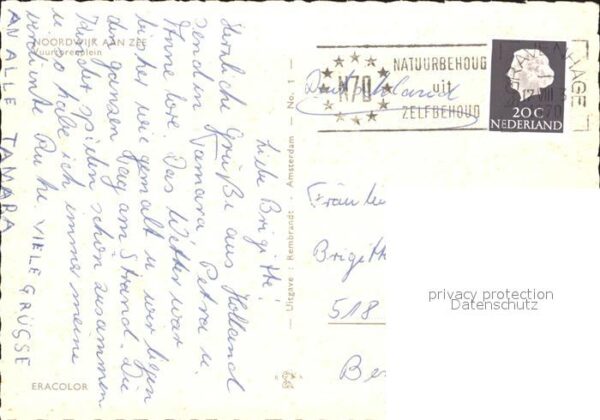 NOORDWIJK AAN ZEE
Vuurtorenplein
Liebe Brigitte!
Herzliche Grüße aus Holland
senden Tamara Petra u.
Anne lore. Das Wetter war
bisher wie gemalt u. wir liegen
den ganzen Tag am Strand. Die
Kinder spielen schön zusammen
u. so habe ich immer meine
verdiente Ruhe VIELE GRÜSSE
AN ALLE TAMARA
ERACOLOR
— Uitgave : Rembrandt - Amsterdam — No. 1 —
N70
NATUURBEHOUD
uit
ZELFBEHOUD
'S-GRAVENHAGE
17 VIII
20 C
NEDERLAND
Deutschland
Fräulei
Brigitt
518
Be
privacy protection
Datenschutz